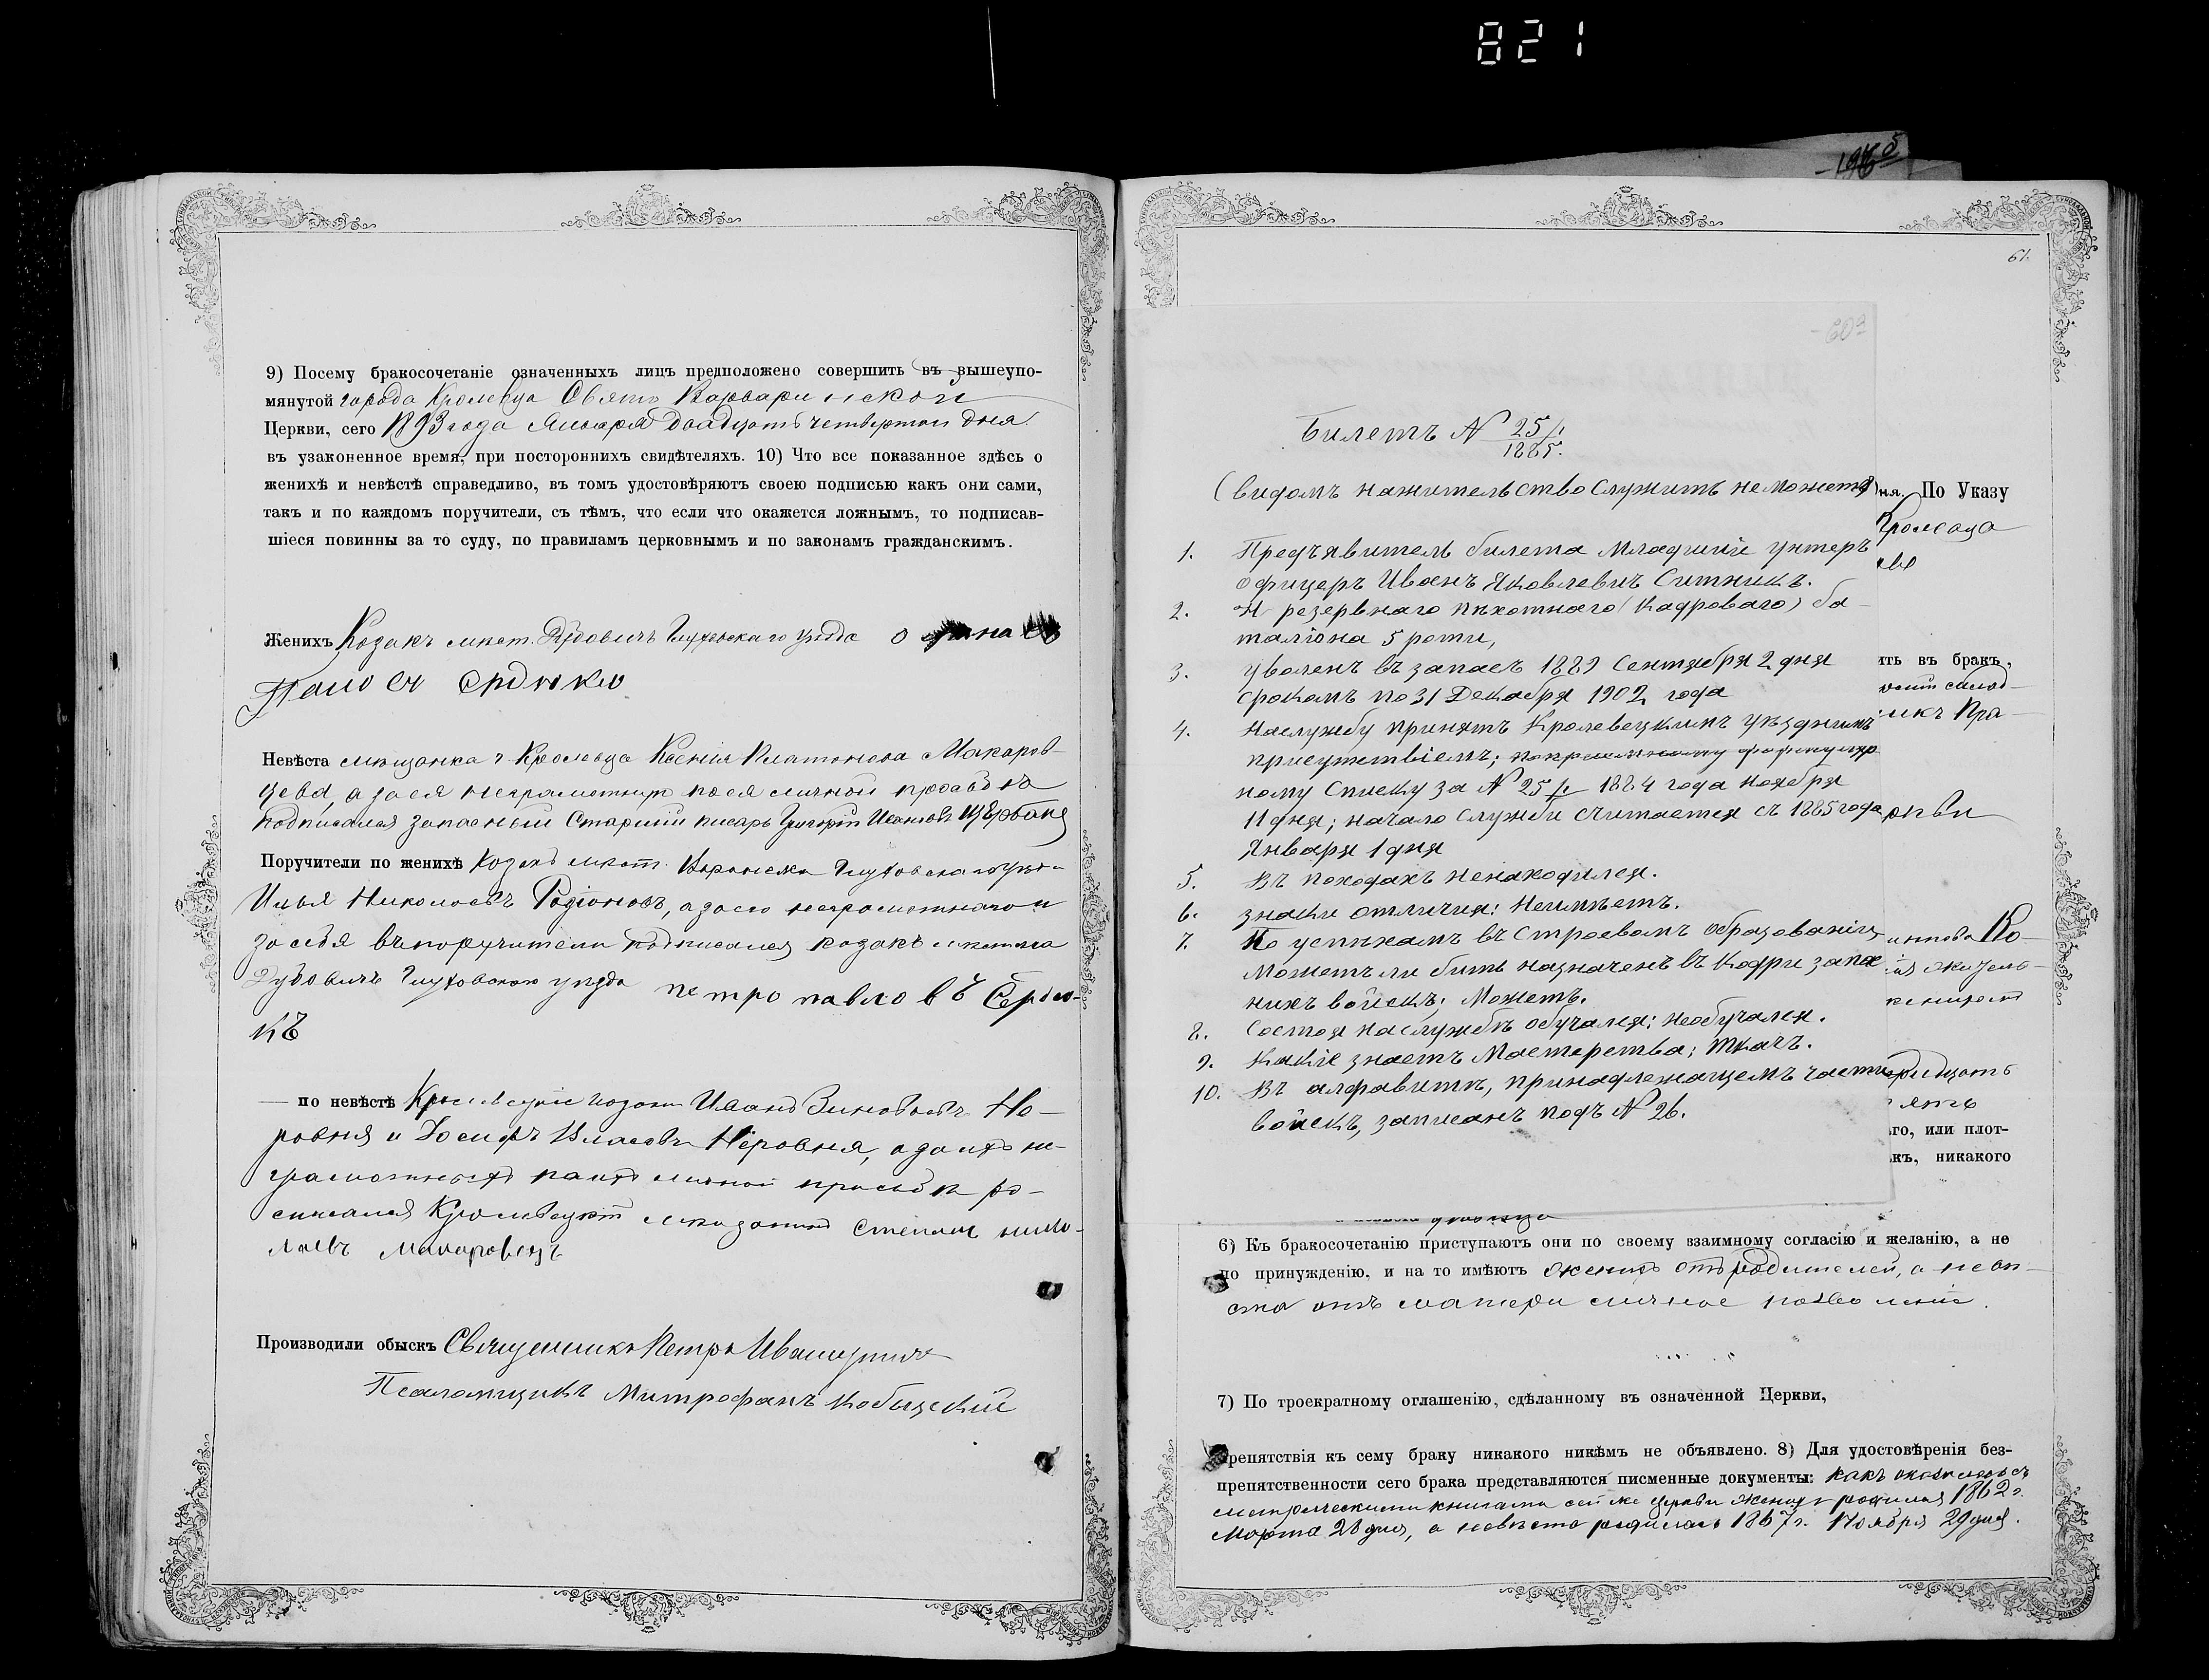 821
1965
9) Посему бракосочетаніе означенныхъ лицъ предположено совершить въ вышеупо-
мянутой города Кролевца Свято Варваринской
Церкви, сего 1893 года Января двадцать четвертаго дня
въ узаконенное время, при постороннихъ свидѣтеляхъ. 10) Что все показанное здѣсь о
женихѣ и невѣстѣ справедливо, въ томъ удостовѣряютъ своею подписью какъ они сами,
такъ и по каждомъ поручители, съ тѣмъ, что если что окажется ложнымъ, то подписав-
шіеся повинны за то суду, по правиламъ церковнымъ и по законамъ гражданскимъ.
Женихъ Козакъ мѣст. Дубовичъ Глуховскаго уѣзда
Невѣста мѣщанка г. Кролевца Ксенія Платонова Макаров-
цева, а за ея неграмотную по ея личной просьбѣ
подписался запасный Старшій писарь Григорій Ивановъ Щербань
Поручители по женихѣ Козакъ мѣст. Воронежа Глуховскаго уѣз-
Илья Николаевъ Родіоновъ, а за его неграмотнаго и
за себя въ поручители подписался козакъ мѣстечка
Дубовичъ Глуховскаго уѣзда петро павловъ Сердю-
къ
— по невѣстѣ Кролевецкіе козаки Иванъ Зиновьевъ Не-
ровня и Іосифъ Власовъ Неровня, а за ихъ не-
грамотныхъ по ихъ личной просьбѣ ро-
списался Кролевецкій мѣщанинъ Степанъ нико-
лаевъ Макаровецъ
Производили обыскъ Священникъ Петръ
Псаломщикъ Митрофанъ Кобыцскій
61.
60ª
Билетъ № 25/1
1885.
(видомъ на жительство служить не можетъ)
1. Предъявитель билета младшій унтеръ
офицеръ Иванъ Яковлевичъ Ситникъ.
2. резервнаго пѣхотнаго (кадроваго) ба-
таліона 5 роты,
3. уволенъ въ запасъ 1889 Сентября 2 дня
срокомъ по 31 Декабря 1902 года
4. На службу принятъ Кролевецкимъ уѣзднымъ
присутствіемъ; по
ному списку за № 25/1 1884 года ноября
11 дня; начало службы считается съ 1885 года
Января 1 дня
5. Въ походахъ не находился.
6. знаки отличия: Не имѣетъ.
7. По успѣхамъ въ строевомъ образованіи,
можетъ ли быть назначенъ въ кадры запа
ныхъ войскъ; Можетъ.
8. Состоя на службѣ обучался: не обучался.
9. Какіе знаетъ Мастерства; ткачъ.
10. Въ алфавитѣ, принадлежащемъ части
войскъ, записанъ подъ № 26.
ня. По Указу
Кролевца
ить въ бракъ,
го, или плот-
къ, никакого
6) Къ бракосочетанію приступаютъ они по своему взаимному согласію и желанію, а не
по принужденію, и на то имѣютъ женихъ отъ родителей, а невѣ-
ста отъ матери личное позволеніе.
7) По троекратному оглашенію, сдѣланному въ означенной Церкви,
препятствія къ сему браку никакого никѣмъ не объявлено. 8) Для удостовѣренія без-
препятственности сего брака представляются писменные документы: какъ оказалось съ
метрическими книгами сей же церкви женихъ родился 1862 г.
Марта 28 дня, а невѣста родилась 1867 г. Ноября 29 дня.